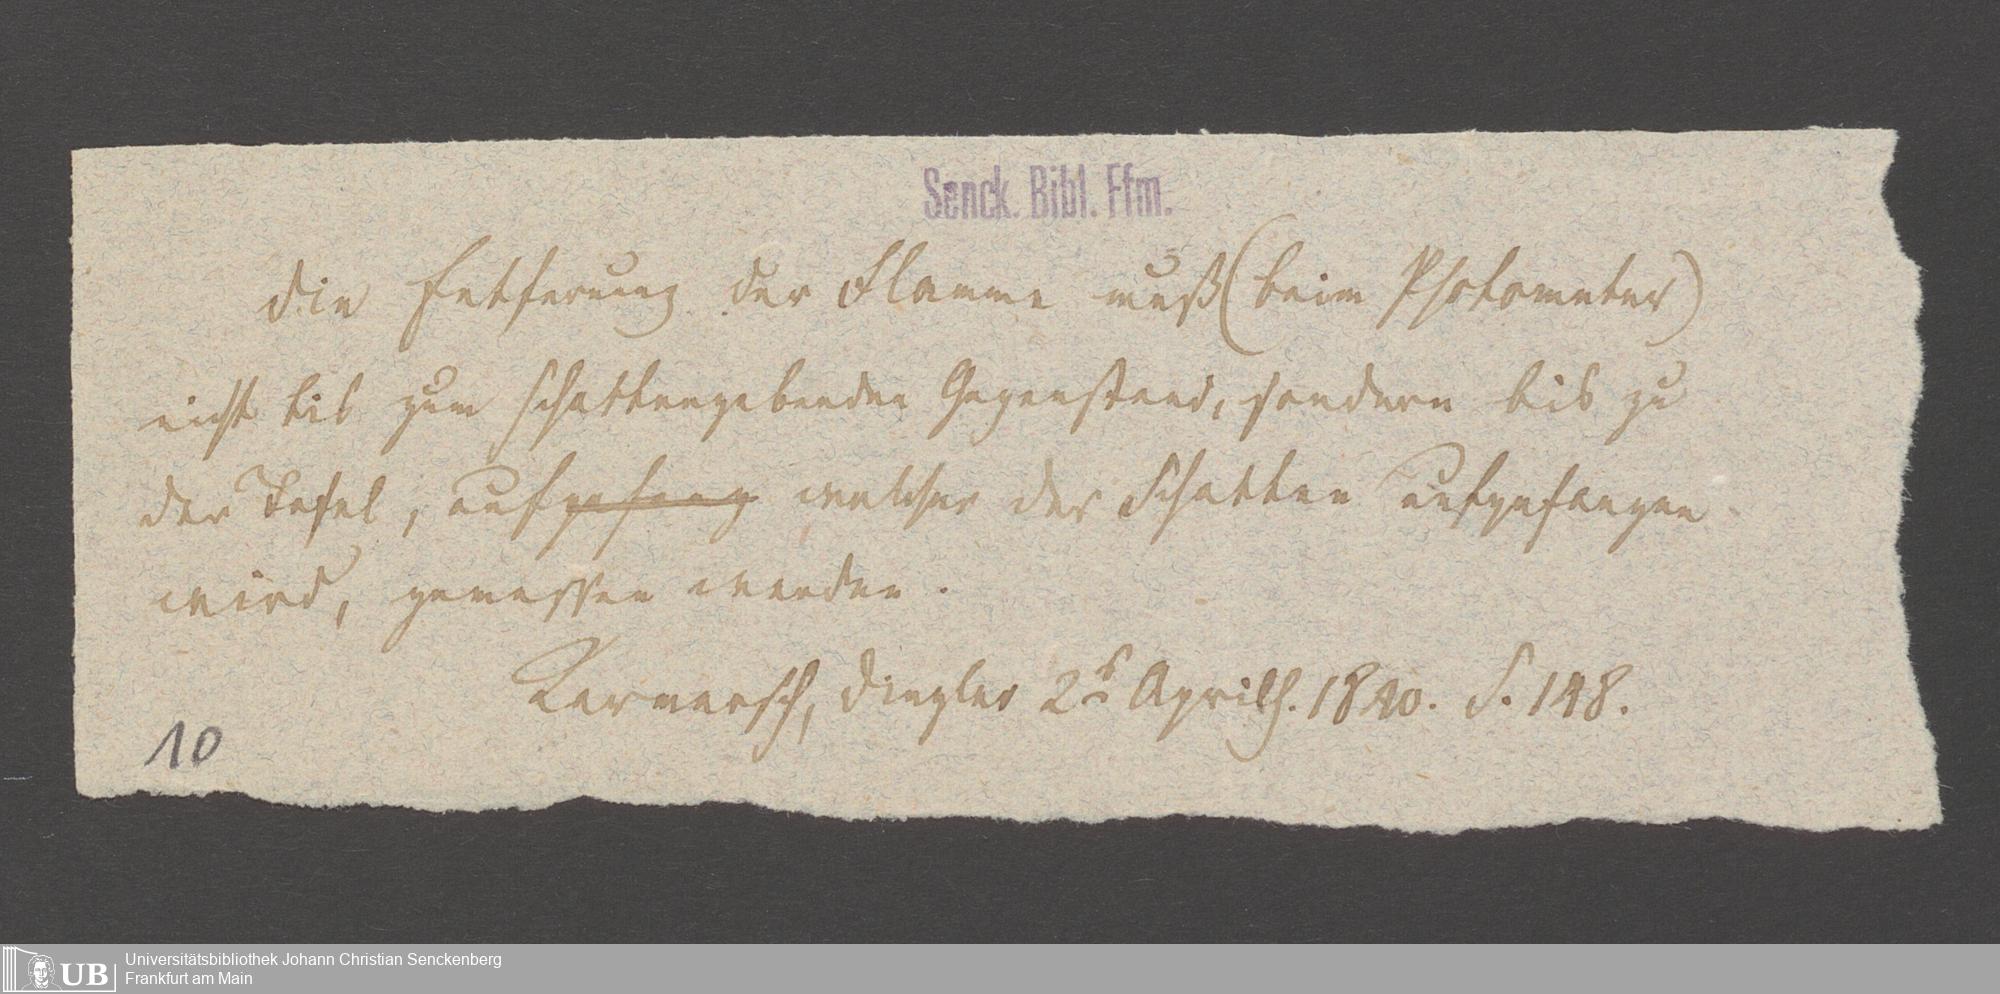 Senck. Bibl. Ffm.
die Entfernung der Flamme muß (beim Photometer)
nicht bis zum schattengebenden Gegenstand, sondern bis zu
der Tafel, aufgefang welcher der Schatten aufgefangen
wird, gemessen werden.
Karmarsch, Dingler 2s Aprilh. 1840. S. 148.
10
UB
Universitätsbibliothek Johann Christian Senckenberg
Frankfurt am Main